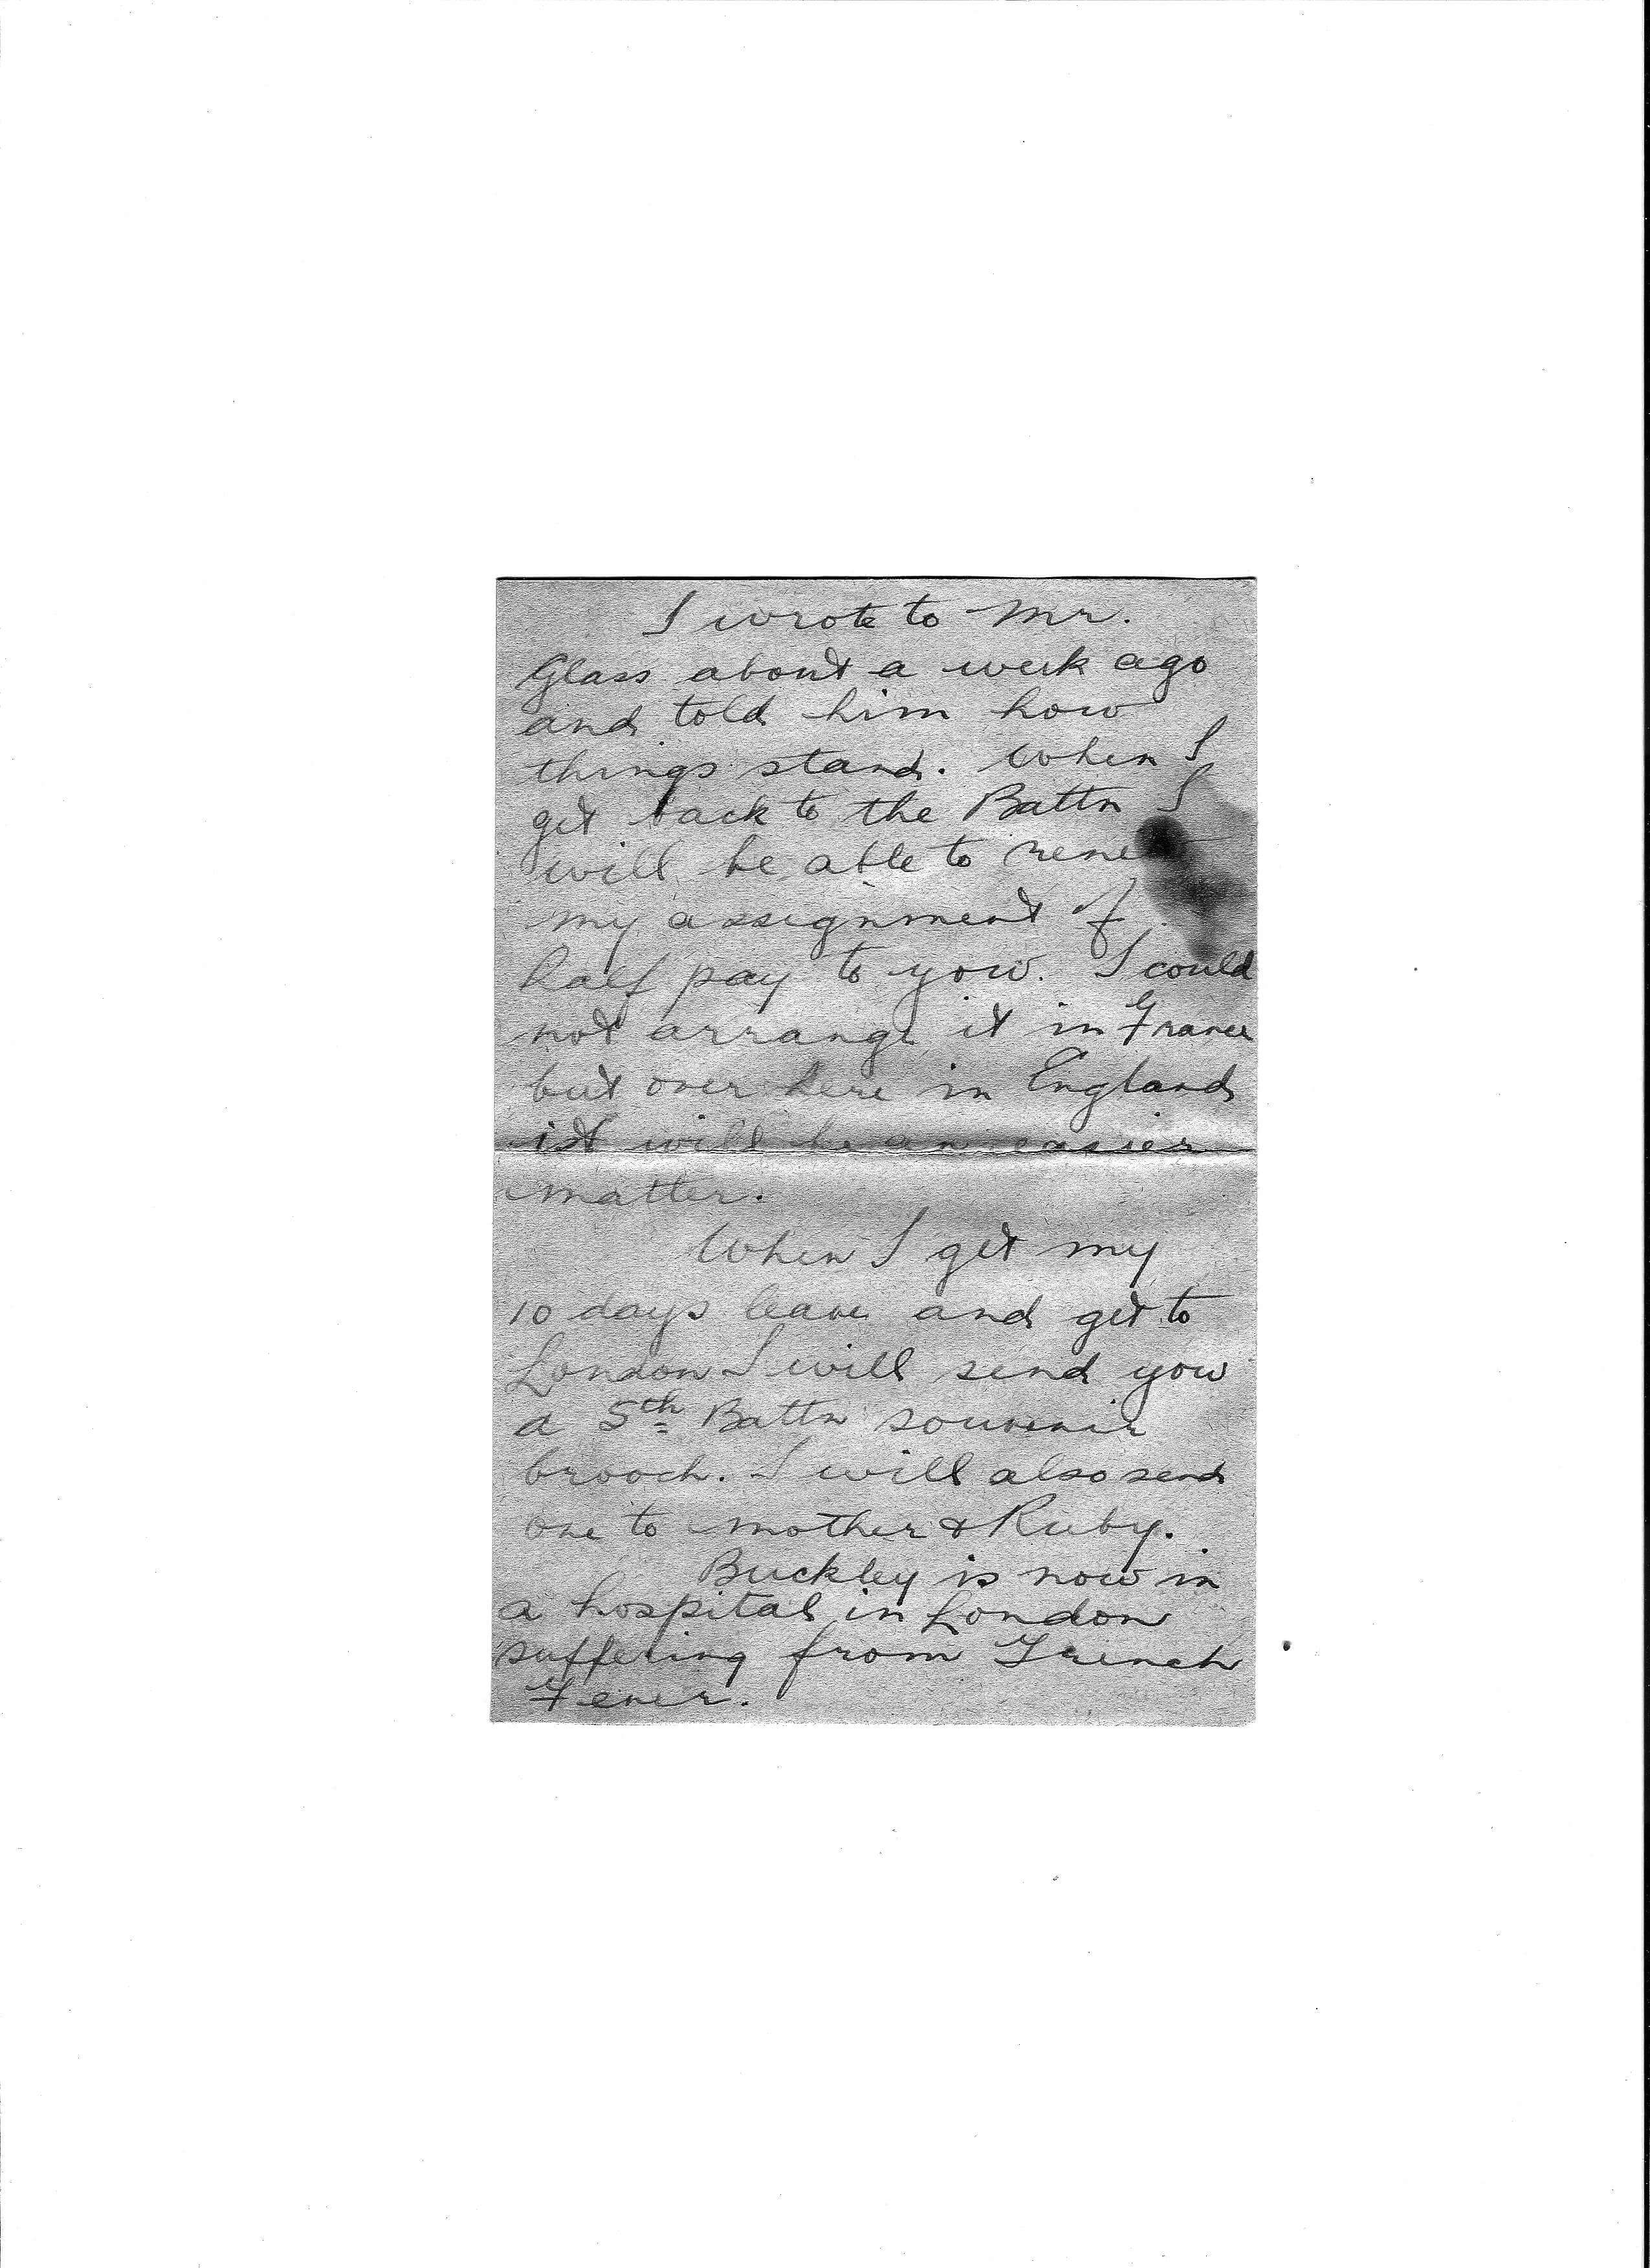 I wrote to Mr.
Glass about a week ago
and told him how
things stand. When I
get back to the Battn I
will be able to renew
my assignment of
half pay to you. I could
not arrange it in France
but over here in England
it will be an easier
matter.
When I get my
10 days leave and get to
London I will send you
a 5th Battn souvenir
brooch. I will also send
one to mother & Ruby.
Buckley is now in
a hospital in London
suffering from Trench
Fever.